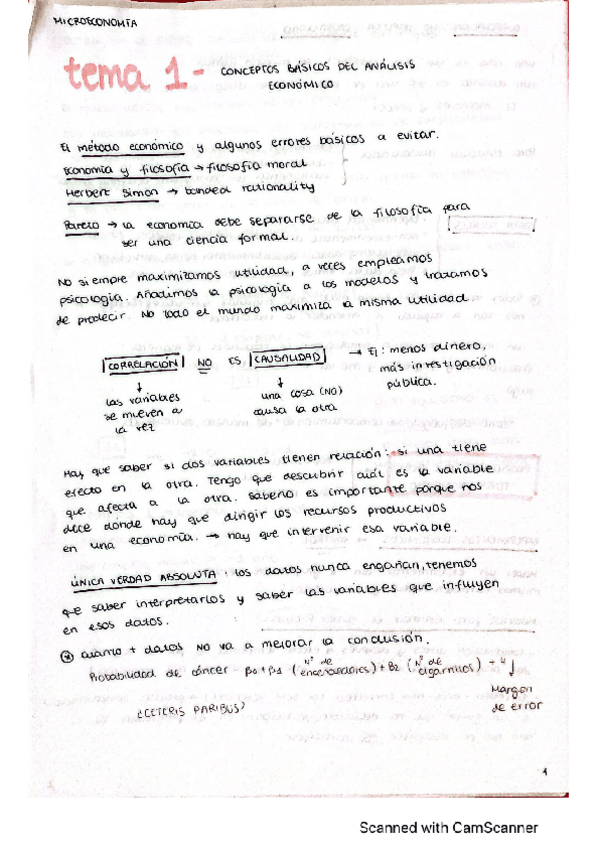 MICROECONOMÍA
tema 1.- CONCEPTOS BÁSICOS DEL ANÁLISIS
ECONÓMICO
El método económico y algunos errores básicos a evitar.
Economía y filosofía → filosofía moral
Herbert Simon → bonded rationality
Pareto → la economía debe separarse de la filosofía para
ser una ciencia formal.
No siempre maximizamos utilidad, a veces empleamos
psicología. Añadimos la psicología a los modelos y tratamos
de predecir. No todo el mundo maximiza la misma utilidad
CORRELACIÓN NO ES CAUSALIDAD → Ej: menos dinero,
más investigación
pública.
↓
las variables
se mueven a
la vez
↓
una cosa (NO)
causa la otra
Hay que saber si dos variables tienen relación: si una tiene
efecto en la otra. Tengo que descubrir cuál es la variable
que afecta a la otra. Saberlo es importante porque nos
dice dónde hay que dirigir los recursos productivos
en una economía. → hay que intervenir esa variable.
ÚNICA VERDAD ABSOLUTA: los datos nunca engañan, tenemos
que saber interpretarlos y saber las variables que influyen
en esos datos.
* cuanto + datos NO va a mejorar la conclusión.
Probabilidad de cáncer = β0 + β1 (Nº de encendedores) + B2 (Nº de cigarrillos) + u
↓
Margen
de error
¿CETERIS PARIBUS?
1
Scanned with CamScanner